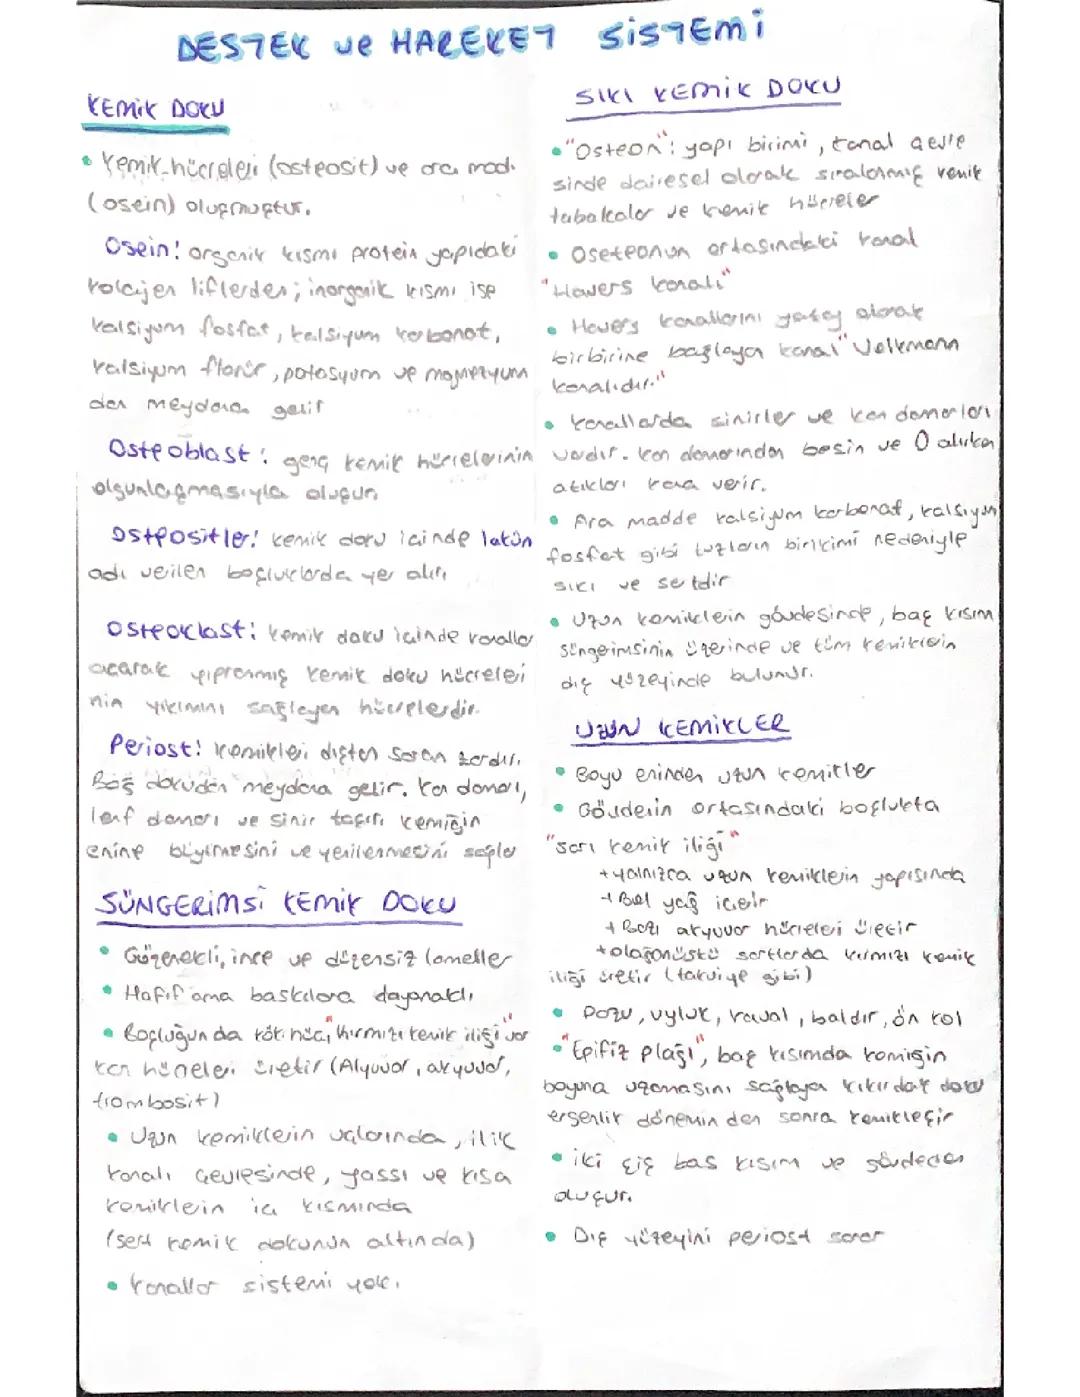 DESTEK ve HAREKET SİSTEMİ
KEMİK DOKU
• Kemik hücreleri (osteosit) ve ara mad.
(osein) oluşmuştur.
Osein: organik kısmı protein yapıdaki
kolajen liflerden; inorganik kısmı ise
kalsiyum fosfat, kalsiyum karbonat,
kalsiyum florür, potasyum ve magnezyum
dan meydana gelir
Osteoblast: genç kemik hücrelerinin
olgunlaşmasıyla oluşur.
Osteositler: kemik doku içinde lakün
adı verilen boşluklarda yer alır.
Osteoklast: kemik doku içinde kanallar
açarak yıpranmış kemik doku hücreleri
nin yıkımını sağlayan hücrelerdir.
Periost: kemikleri dıştan saran zardır.
Bağ dokudan meydana gelir. Kan damarı,
lenf damarı ve sinir taşır. kemiğin
enine büyümesini ve yenilenmesini sağlar
SÜNGERİMSİ KEMİK DOKU
• Gözenekli, ince ve düzensiz lameller
• Hafif ama baskılara dayanaklı
• Boşluğunda kök hüc, "kırmızı kemik iliği" var
kan hücreleri üretir (Alyuvar, akyuvar,
trombosit)
• Uzun kemiklerin uçlarında, ilik
kanalı çevresinde, yassı ve kısa
kemiklerin iç kısmında
(sert kemik dokunun altında)
• Kanallar sistemi yok.
SIKI KEMİK DOKU
• "Osteon": yapı birimi, kanal çevre
sinde dairesel olarak sıralanmış kemik
tabakalar ve kemik hücreler
• Oseteonun ortasındaki kanal
"Havers kanalı"
• Havers kanallarını yatay olarak
birbirine bağlayan kanal "Volkmann
kanalıdır."
• Kanallarda sinirler ve kan damarları
vardır. Kan damarından besin ve O alırken
atıkları kana verir.
• Ara madde kalsiyum karbonat, kalsiyum
fosfat gibi tuzların birikimi nedeniyle
sıkı ve sertdir
• Uzun kemiklerin gövdesinde, baş kısım
süngerimsinin üzerinde ve tüm kemiklerin
dış yüzeyinde bulunur.
UZUN KEMİKLER
• Boyu eninden uzun kemikler
• Gövdenin ortasındaki boşlukta
"sarı kemik iliği"
+ yalnızca uzun kemiklerin yapısında
+ Bol yağ içerir
+ Bazı akyuvar hücreleri üretir
+ olağanüstü şartlarda kırmızı kemik
iliği üretir (takviye gibi)
• Pazu, uyluk, kaval, baldır, ön kol
• "Epifiz plağı", baş kısımda kemiğin
boyuna uzamasını sağlayan kıkırdak doku
ergenlik döneminden sonra kemikleşir
• İki şiş baş kısım ve gövdeden
oluşur.
• Dış yüzeyini periost sarar